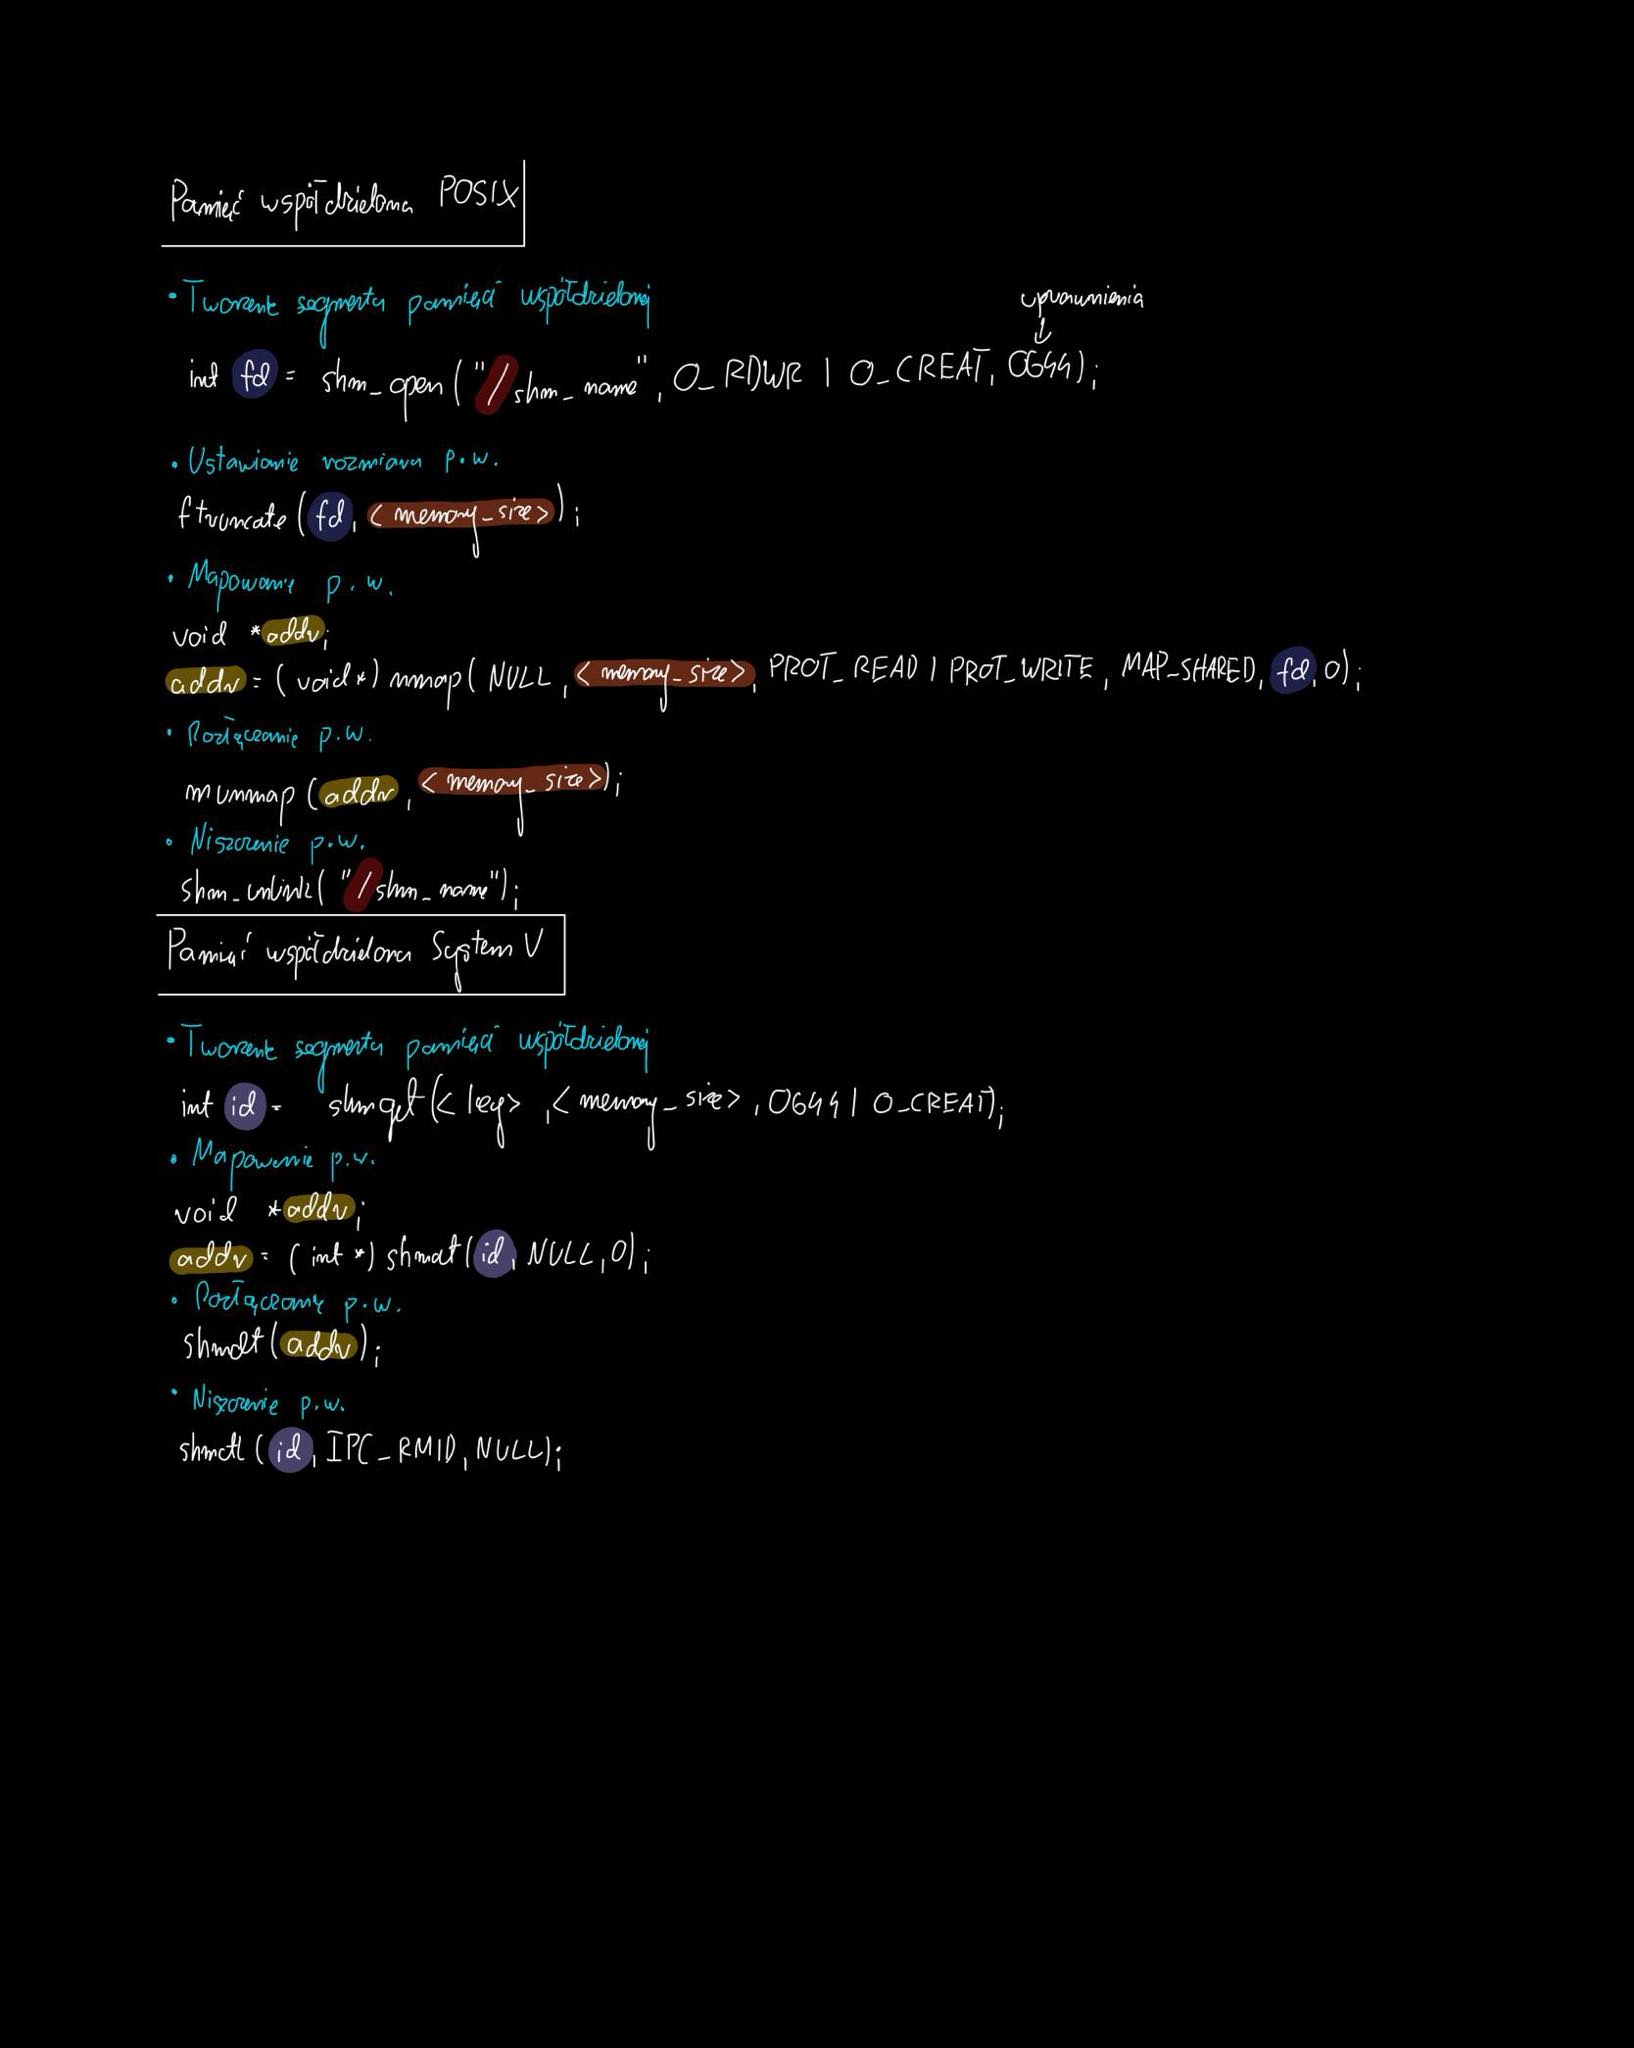 Pamięć współdzielona POSIX
• Tworzenie segmentu pamięci współdzielonej
uprawnienia
int fd = shm_open("/shm_name", O_RDWR | O_CREAT, 0644);
• Ustawianie rozmiaru p.w.
ftruncate(fd, <memory_size>);
• Mapowanie p.w.
void *addr;
addr = (void*) mmap(NULL, <memory_size>, PROT_READ | PROT_WRITE, MAP_SHARED, fd, 0);
• Rozłączanie p.w.
munmap(addr, <memory_size>);
• Niszczenie p.w.
shm_unlink("/shm_name");
Pamięć współdzielona System V
• Tworzenie segmentu pamięci współdzielonej
int id = shmget(<key>, <memory_size>, 0644 | O_CREAT);
• Mapowanie p.w.
void *addr;
addr = (int*) shmat(id, NULL, 0);
• Rozłączanie p.w.
shmdt(addr);
• Niszczenie p.w.
shmctl(id, IPC_RMID, NULL);